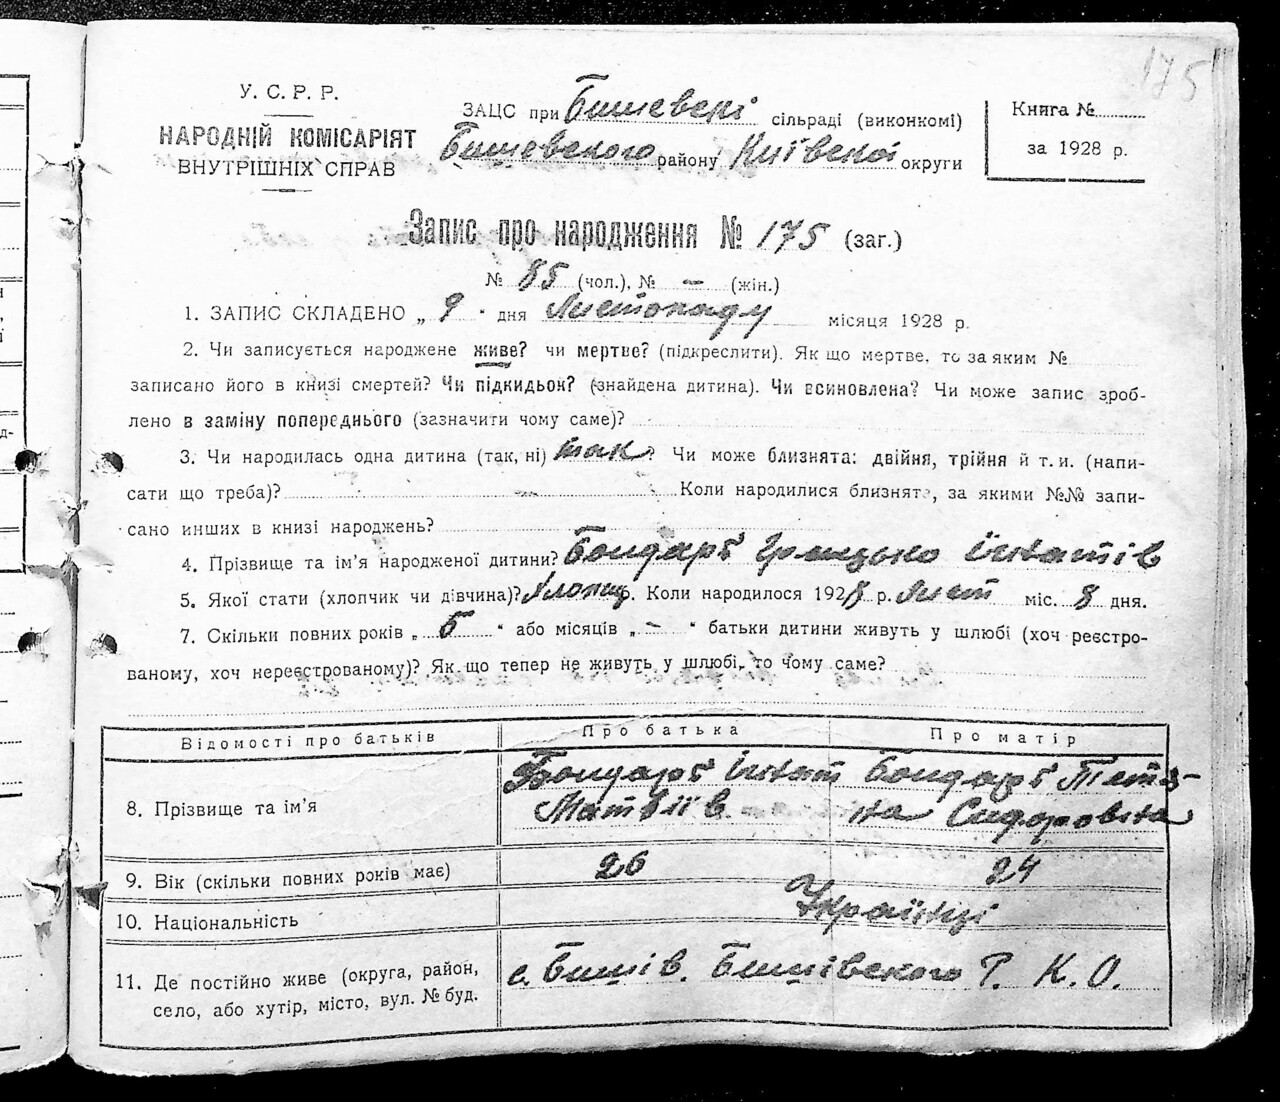 175
У. С. Р. Р.
НАРОДНІЙ КОМІСАРІЯТ
ВНУТРІШНІХ СПРАВ
ЗАЦС при Бишевскі сільраді (виконкомі)
Бишевского району Київскої округи
Книга №
за 1928 р.
Запис про народження № 175 (заг.)
№ 85 (чол.), № — (жін.)
1. ЗАПИС СКЛАДЕНО „ 9 " дня Листопаду місяця 1928 р.
2. Чи записується народжене живе? чи мертве? (підкреслити). Як що мертве, то за яким №
записано його в книзі смертей? Чи підкидьок? (знайдена дитина). Чи всиновлена? Чи може запис зроб-
лено в заміну попереднього (зазначити чому саме)?
3. Чи народилась одна дитина (так, ні) так? Чи може близнята: двійня, трійня й т. и. (напи-
сати що треба)? — Коли народилися близнята, за якими №№ запи-
сано инших в книзі народжень?
4. Прізвище та ім'я народженої дитини? Бондарь Грицько Ігнатів
5. Якої статі (хлопчик чи дівчина)? Хлопець. Коли народилося 1928 р. Лист міс. 8 дня.
7. Скільки повних років „ 5 " або місяців „ — " батьки дитини живуть у шлюбі (хоч реєстро-
ваному, хоч нереєстрованому)? Як що тепер не живуть у шлюбі, то чому саме?
Відомості про батьків Про батька Про матір
8. Прізвище та ім'я Бондарь Ігнат Матвіїв Бондарь Тетяна Сидоровна
9. Вік (скільки повних років має) 26 24
10. Національність Українці
11. Де постійно живе (округа, район,
село, або хутір, місто, вул. № буд. с. Бишів. Бишівского Р. К. О.